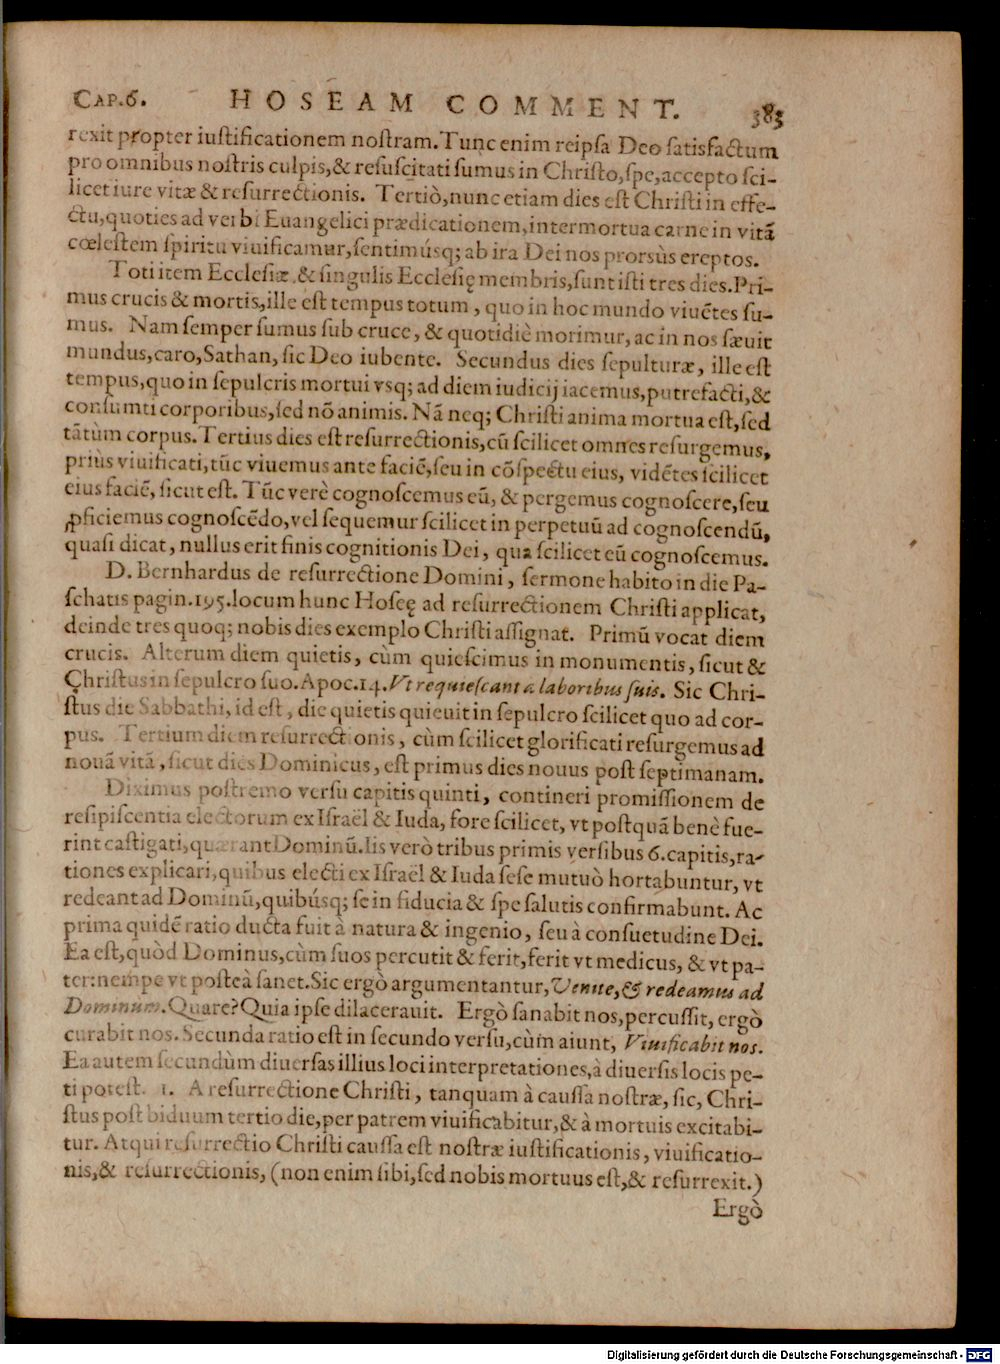 CAP.6. HOSEAM COMMENT. 383
rexit propter iustificationem nostram. Tunc enim reipsa Deo satisfactum
pro omnibus nostris culpis, & resuscitati sumus in Christo, spe, accepto sci-
licet iure vitæ & resurrectionis. Tertiò, nunc etiam dies est Christi in effe-
ctu, quoties ad verbi Euangelici prædicationem, intermortua carne in vitã
cœlestem spiritu viuificamur, sentimúsq; ab ira Dei nos prorsùs ereptos.
Toti item Ecclesiæ & singulis Ecclesię membris, sunt isti tres dies. Pri-
mus crucis & mortis, ille est tempus totum, quo in hoc mundo viuẽtes su-
mus. Nam semper sumus sub cruce, & quotidiè morimur, ac in nos sæuit
mundus, caro, Sathan, sic Deo iubente. Secundus dies sepulturæ, ille est
tempus, quo in sepulcris mortui vsq; ad diem iudicij iacemus, putrefacti, &
consumti corporibus, sed nõ animis. Nã neq; Christi anima mortua est, sed
tãtùm corpus. Tertius dies est resurrectionis, cũ scilicet omnes resurgemus,
priùs viuificati, tũc viuemus ante faciẽ, seu in cõspectu eius, vidẽtes scilicet
eius faciẽ, sicut est. Tũc verè cognoscemus eũ, & pergemus cognoscere, seu
ꝓficiemus cognoscẽdo, vel sequemur scilicet in perpetuũ ad cognoscendũ,
quasi dicat, nullus erit finis cognitionis Dei, qua scilicet eũ cognoscemus.
D. Bernhardus de resurrectione Domini, sermone habito in die Pa-
schatis pagin. 195. locum hunc Hoseę ad resurrectionem Christi applicat,
deinde tres quoq; nobis dies exemplo Christi assignat. Primũ vocat diem
crucis. Alterum diem quietis, cùm quiescimus in monumentis, sicut &
Christus in sepulcro suo. Apoc. 14. Vt requiescant a laboribus suis. Sic Chri-
stus die Sabbathi, id est, die quietis quieuit in sepulcro scilicet quo ad cor-
pus. Tertium diem resurrectionis, cùm scilicet glorificati resurgemus ad
nouã vitã, sicut dies Dominicus, est primus dies nouus post septimanam.
Diximus postremo versu capitis quinti, contineri promissionem de
resipiscentia electorum ex Israël & Iuda, fore scilicet, vt postquã benè fue-
rint castigati, quærant Dominũ. Iis verò tribus primis versibus 6. capitis, ra-
tiones explicari, quibus electi ex Israël & Iuda sese mutuò hortabuntur, vt
redeant ad Dominũ, quibúsq; se in fiducia & spe salutis confirmabunt. Ac
prima quidẽ ratio ducta fuit à natura & ingenio, seu à consuetudine Dei.
Ea est, quòd Dominus, cùm suos percutit & ferit, ferit vt medicus, & vt pa-
ter: nempe vt posteà sanet. Sic ergò argumentantur, Venite, & redeamus ad
Dominum. Quare? Quia ipse dilacerauit. Ergò sanabit nos, percussit, ergò
curabit nos. Secunda ratio est in secundo versu, cùm aiunt, Viuificabit nos.
Ea autem secundùm diuersas illius loci interpretationes, à diuersis locis pe-
ti potest. 1. A resurrectione Christi, tanquam à caussa nostræ, sic, Chri-
stus post biduum tertio die, per patrem viuificabitur, & à mortuis excitabi-
tur. Atqui resurrectio Christi caussa est nostræ iustificationis, viuificatio-
nis, & resurrectionis, (non enim sibi, sed nobis mortuus est, & resurrexit.)
Ergò
Digitalisierung gefördert durch die Deutsche Forschungsgemeinschaft - DFG